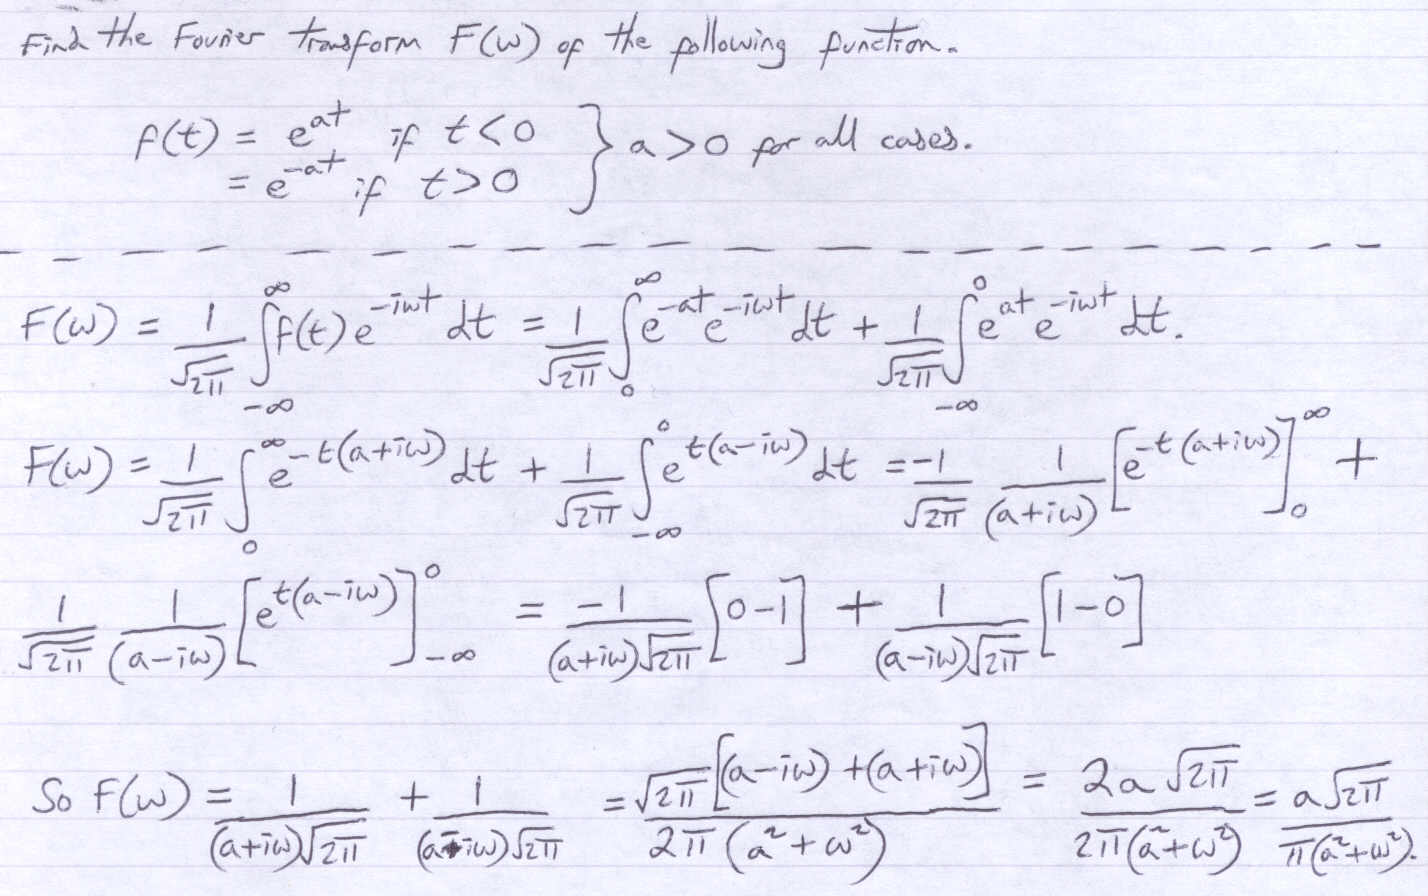 Find the Fourier transform F(ω) of the following function.
f(t) = e^{at} if t < 0 } a > 0 for all cases.
= e^{-at} if t > 0
F(ω) = 1/√(2π) ∫_{-∞}^{∞} f(t) e^{-iωt} dt = 1/√(2π) ∫_{0}^{∞} e^{-at} e^{-iωt} dt + 1/√(2π) ∫_{-∞}^{0} e^{at} e^{-iωt} dt.
F(ω) = 1/√(2π) ∫_{0}^{∞} e^{-t(a+iω)} dt + 1/√(2π) ∫_{-∞}^{0} e^{t(a-iω)} dt = -1/√(2π) 1/(a+iω) [e^{-t(a+iω)}]_{0}^{∞} +
1/√(2π) 1/(a-iω) [e^{t(a-iω)}]_{-∞}^{0} = -1/((a+iω)√(2π)) [0-1] + 1/((a-iω)√(2π)) [1-0]
So F(ω) = 1/((a+iω)√(2π)) + 1/((a-iω)√(2π)) = √(2π)[(a-iω)+(a+iω)]/(2π(a²+ω²)) = 2a√(2π)/(2π(a²+ω²)) = a√(2π)/(π(a²+ω²)).